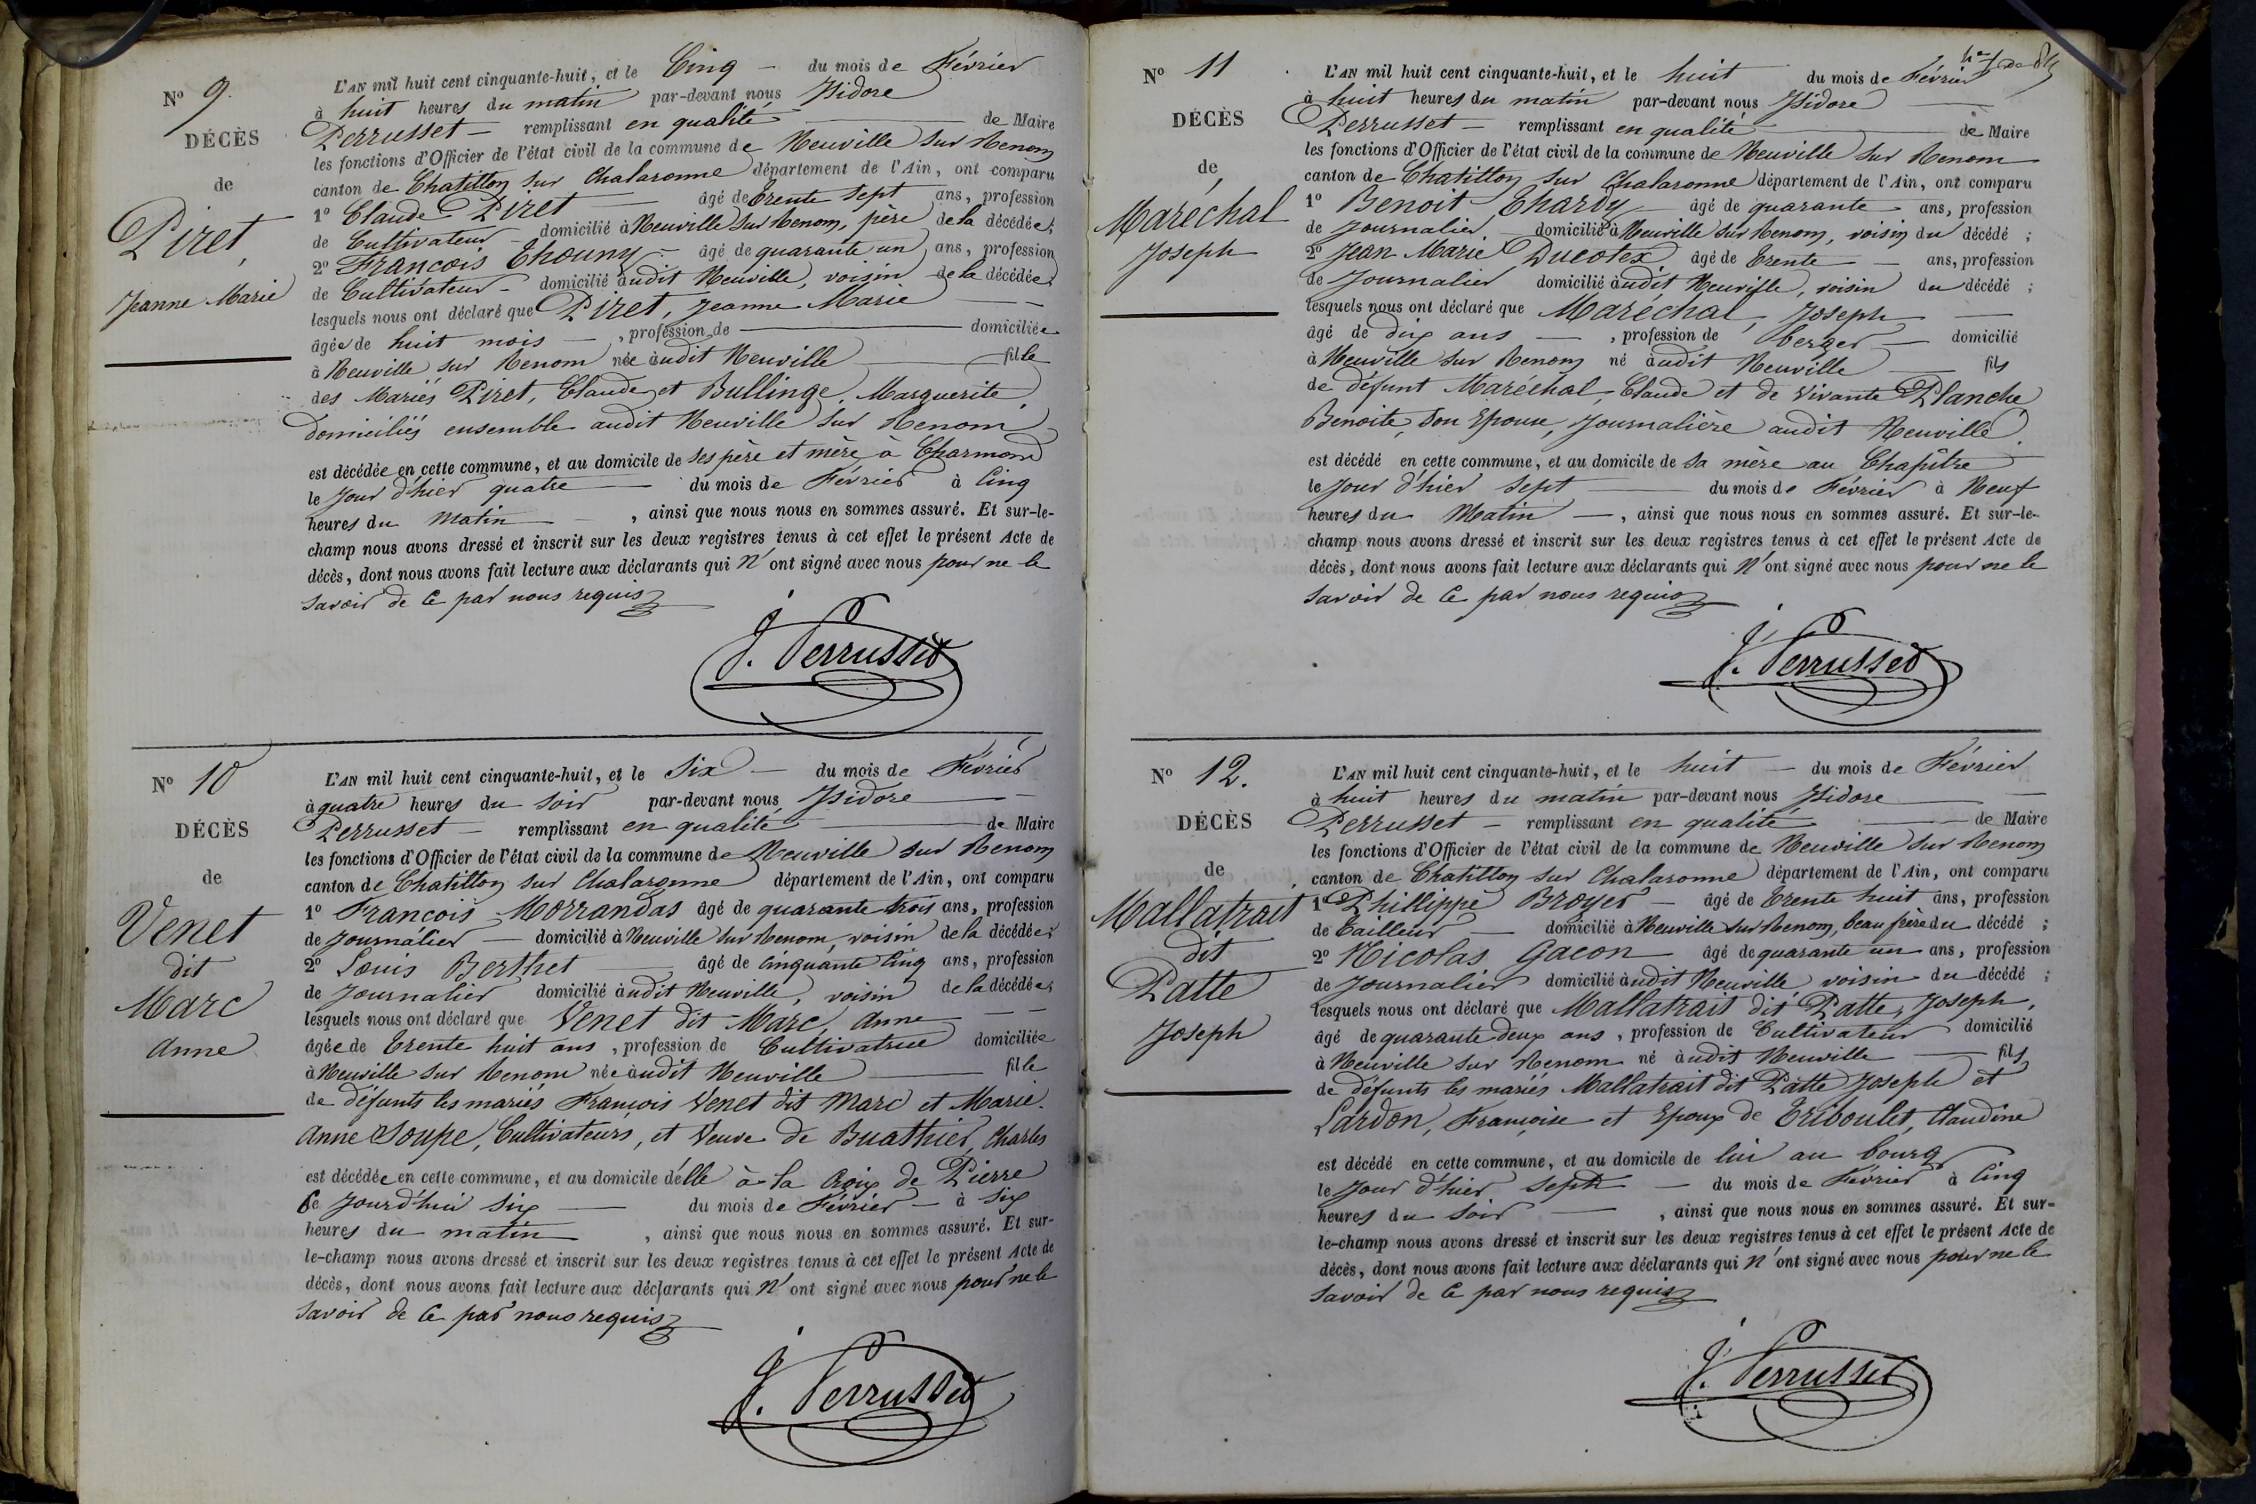 N° 9.
DÉCÈS
de
Piret,
Jeanne Marie
L'AN mil huit cent cinquante-huit, et le Cinq — du mois de Février
à huit heures du matin par-devant nous Isidore
Perrusset — remplissant en qualité — de Maire
les fonctions d'Officier de l'état civil de la commune de Neuville sur Renom
canton de Chatillon sur Chalaronne département de l'Ain, ont comparu
1° Claude Piret — âgé de Trente sept ans, profession
de Cultivateur — domicilié à Neuville sur Renom, père de la décédée;
2° François Thouny — âgé de quarante un ans, profession
de Cultivateur — domicilié audit Neuville, voisin de la décédée;
lesquels nous ont déclaré que Piret, Jeanne Marie —
âgée de huit mois —, profession de — domiciliée
à Neuville sur Renom née audit Neuville — fille
des Mariés Piret, Claude et Bullinge, Marguerite,
domiciliés ensemble audit Neuville sur Renom
est décédée en cette commune, et au domicile de ses père et mère à Charmond
le jour d'hier quatre — du mois de Février à Cinq
heures du Matin —, ainsi que nous nous en sommes assuré. Et sur-le-
champ nous avons dressé et inscrit sur les deux registres tenus à cet effet le présent Acte de
décès, dont nous avons fait lecture aux déclarants qui n'ont signé avec nous pour ne le
savoir de ce par nous requis
J. Perrusset
N° 10
DÉCÈS
de
Venet
dit
Marc
Anne
L'AN mil huit cent cinquante-huit, et le Six — du mois de Février
à quatre heures du soir par-devant nous Isidore —
Perrusset — remplissant en qualité — de Maire
les fonctions d'Officier de l'état civil de la commune de Neuville sur Renom
canton de Chatillon sur Chalaronne département de l'Ain, ont comparu
1° François Morrandas âgé de quarante trois ans, profession
de Journalier — domicilié à Neuville sur Renom, voisin de la décédée;
2° Louis Berthet — âgé de cinquante cinq ans, profession
de Journalier domicilié audit Neuville, voisin de la décédée;
lesquels nous ont déclaré que Venet dit Marc, Anne —
âgée de Trente huit ans, profession de Cultivatrice domiciliée
à Neuville sur Renom née audit Neuville — fille
de défunts les mariés François Venet dit Marc et Marie
Anne Soupe, Cultivateurs, et Veuve de Buathier, Charles
est décédée en cette commune, et au domicile d'elle à la Croix de Pierre
Ce Jourd'hui six — du mois de Février — à six
heures du matin, ainsi que nous nous en sommes assuré. Et sur-
le-champ nous avons dressé et inscrit sur les deux registres tenus à cet effet le présent Acte de
décès, dont nous avons fait lecture aux déclarants qui n'ont signé avec nous pour ne le
savoir de ce par nous requis
J. Perrusset
N° 11
DÉCÈS
de
Maréchal
Joseph
L'AN mil huit cent cinquante-huit, et le huit du mois de Février
à huit heures du matin par-devant nous Isidore —
Perrusset — remplissant en qualité — de Maire
les fonctions d'Officier de l'état civil de la commune de Neuville sur Renom
canton de Chatillon sur Chalaronne département de l'Ain, ont comparu
1° Benoit Chardy âgé de quarante ans, profession
de Journalier — domicilié à Neuville sur Renom, voisin du décédé;
2° Jean Marie Ducotex âgé de Trente — ans, profession
de Journalier domicilié audit Neuville, voisin du décédé;
lesquels nous ont déclaré que Maréchal, Joseph —
âgé de dix ans —, profession de berger — domicilié
à Neuville sur Renom né audit Neuville — fils
de défunt Maréchal, Claude et de Vivante Planche
Benoite, son Epouse, Journalière audit Neuville.
est décédé en cette commune, et au domicile de sa mère au Chapître
le Jour d'hier sept — du mois de Février à Neuf
heures du Matin —, ainsi que nous nous en sommes assuré. Et sur-le-
champ nous avons dressé et inscrit sur les deux registres tenus à cet effet le présent Acte de
décès, dont nous avons fait lecture aux déclarants qui n'ont signé avec nous pour ne le
savoir de ce par nous requis
J. Perrusset
N° 12.
DÉCÈS
de
Mallatrait
dit
Patte
Joseph
L'AN mil huit cent cinquante-huit, et le huit — du mois de Février
à huit heures du matin par-devant nous Isidore —
Perrusset — remplissant en qualité — de Maire
les fonctions d'Officier de l'état civil de la commune de Neuville sur Renom
canton de Chatillon sur Chalaronne département de l'Ain, ont comparu
1° Phillippe Broyer — âgé de Trente huit ans, profession
de Tailleur — domicilié à Neuville sur Renom, beau frère du décédé;
2° Nicolas Gacon âgé de quarante un ans, profession
de Journalier domicilié audit Neuville voisin du décédé;
lesquels nous ont déclaré que Mallatrait dit Patte, Joseph,
âgé de quarante deux ans, profession de Cultivateur domicilié
à Neuville sur Renom né audit Neuville — fils
de défunts les mariés Mallatrait dit Patte Joseph et
Lardon, Françoise et Epoux de Triboulet, Claudine
est décédé en cette commune, et au domicile de lui au bourg
le Jour d'hier sept — du mois de Février à Cinq
heures du Soir —, ainsi que nous nous en sommes assuré. Et sur-
le-champ nous avons dressé et inscrit sur les deux registres tenus à cet effet le présent Acte de
décès, dont nous avons fait lecture aux déclarants qui n'ont signé avec nous pour ne le
savoir de ce par nous requis
J. Perrusset